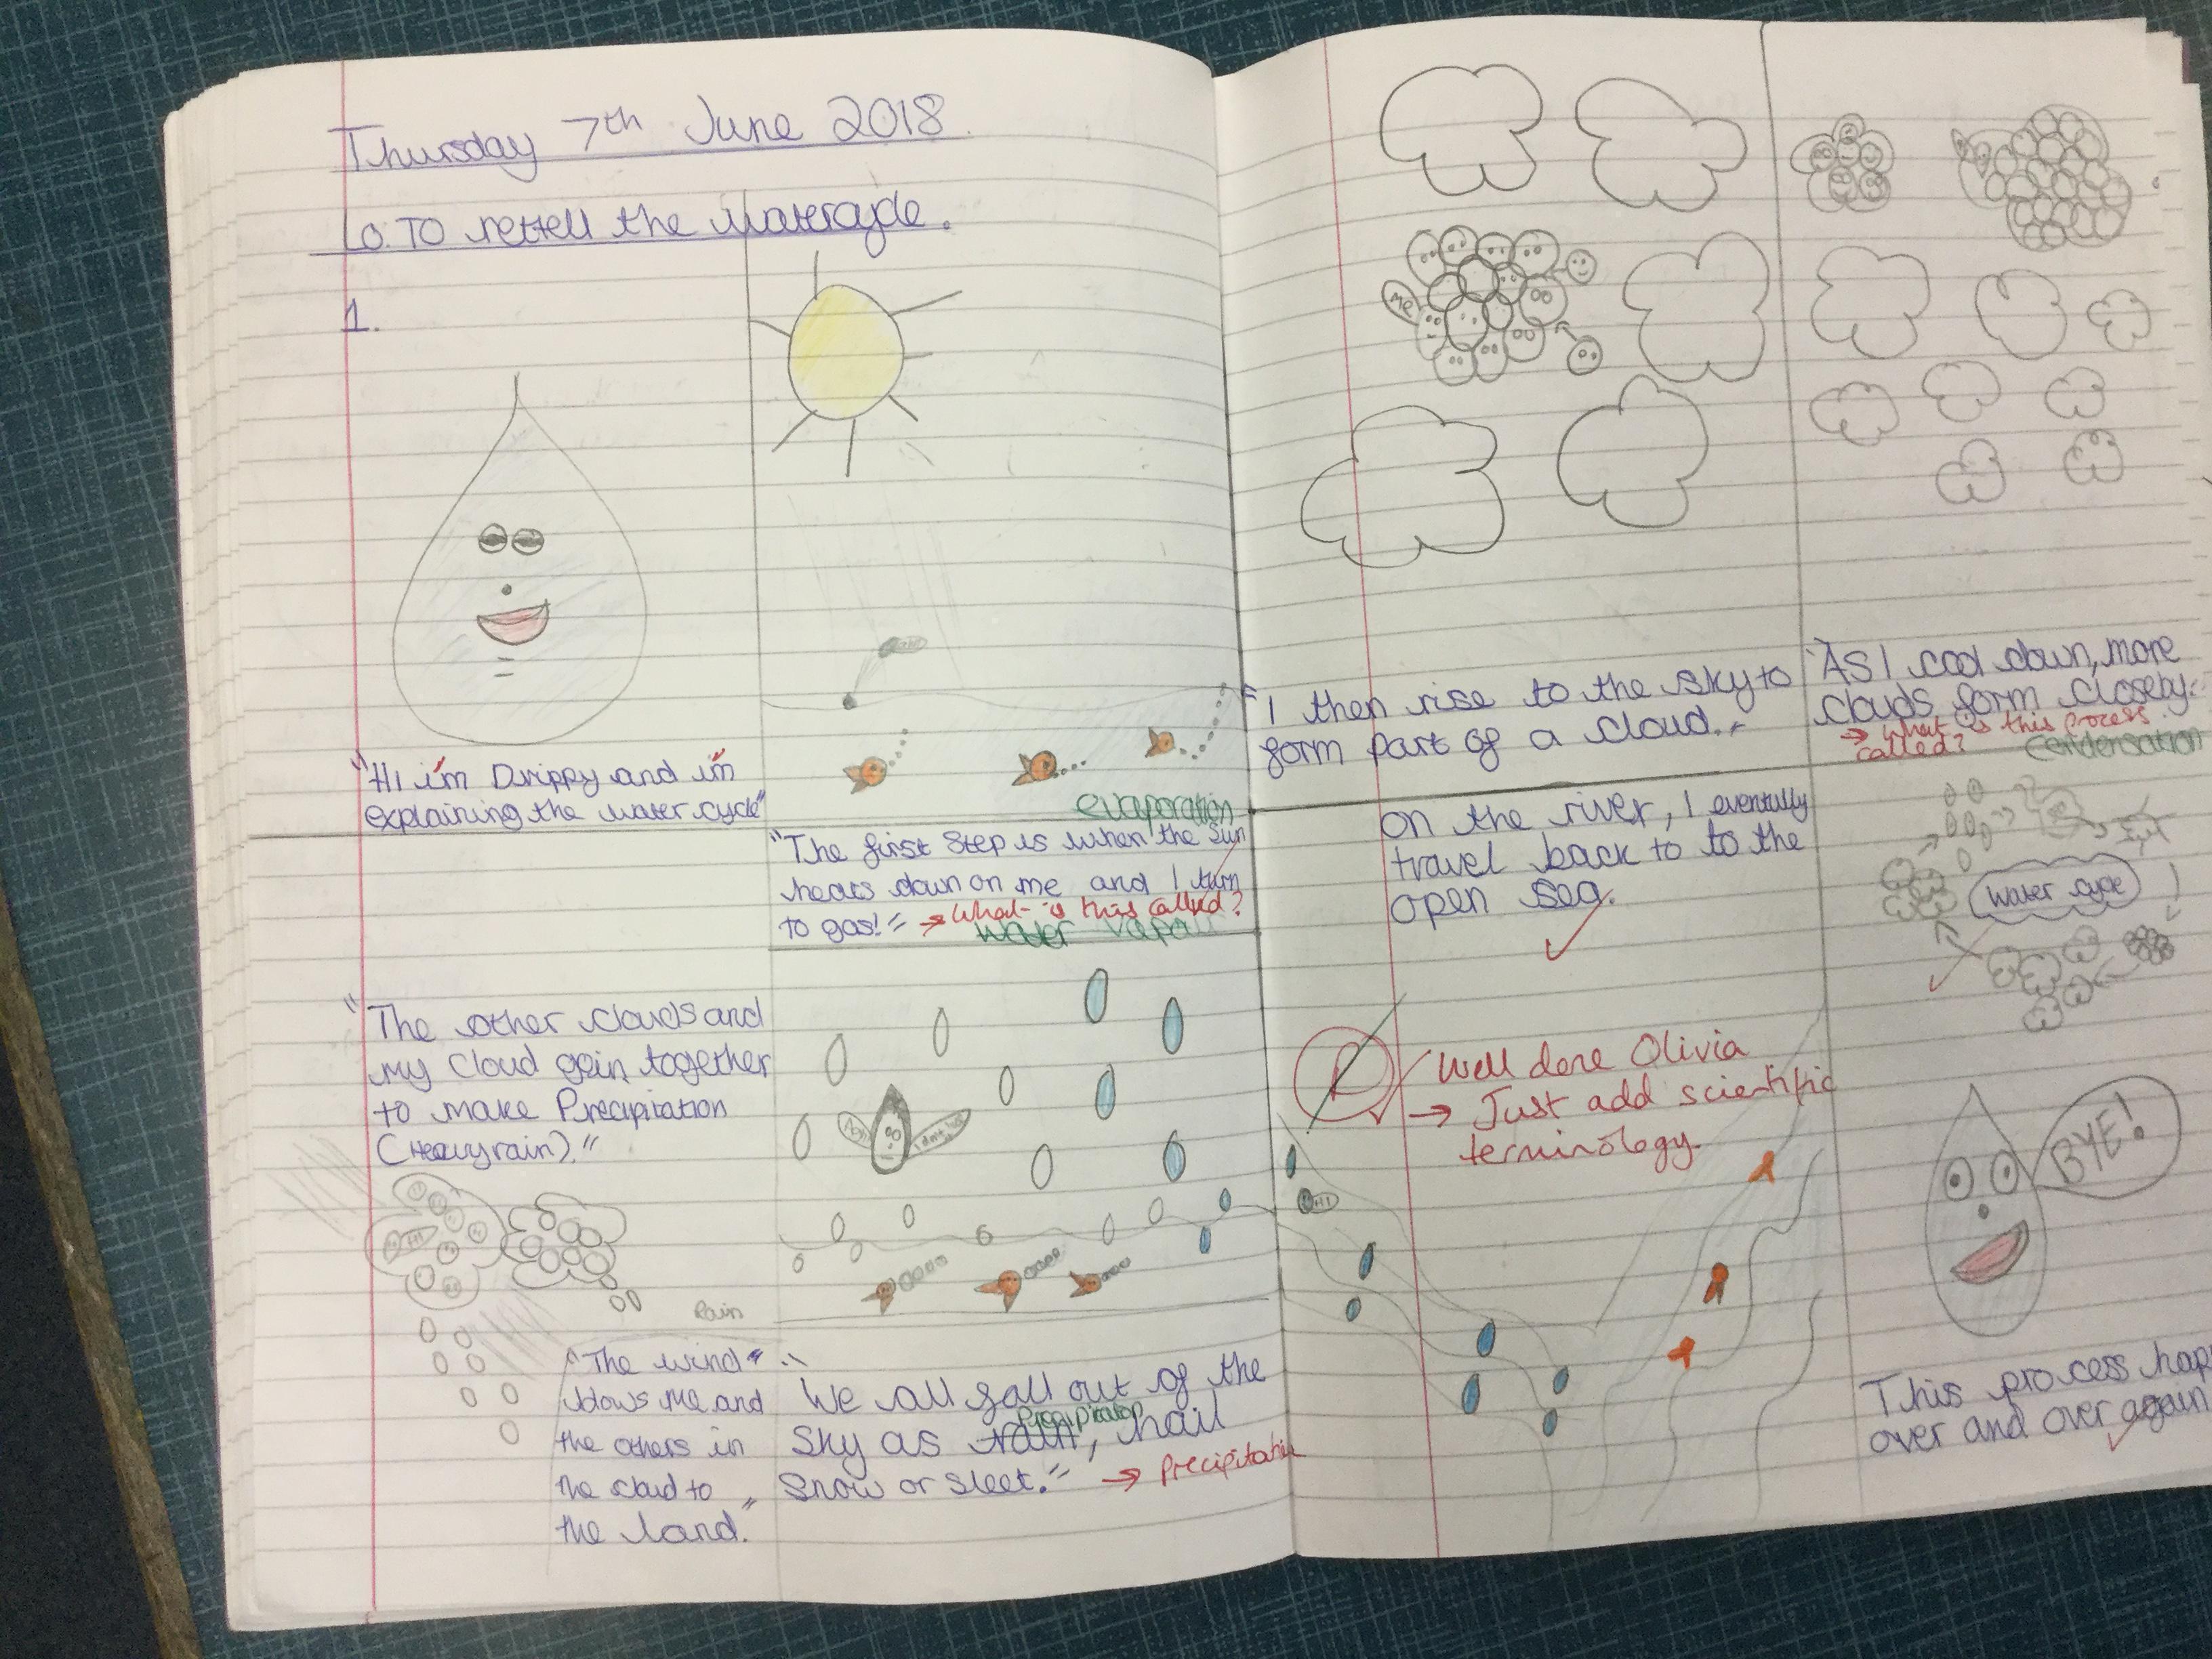 Thursday 7th June 2018.
Lo. To rettell the Watercycle.
1.
"Hi i'm Drippy and i'm
explaining the water cycle"
evaporation
"The first Step is when the Sun
heats down on me and I turn
to gas!" → What is this called?
water vapour
"I then rise to the sky to
form part of a cloud."
Me
"As I cool down, more
clouds form closeby.
→ What is this process
called? condensation
"The other clouds and
my Cloud gain together
to make Precipitation
(Heavy rain)."
Rain
"The wind
blows me and
the others in
the cloud to
the land."
"We all fall out of the
Precipitation
Sky as rain, hail
Snow or sleet." → Precipitation
HI
on the river, I eventully
travel back to to the
open sea.
R
Well done Olivia
→ Just add scientific
terminology.
Water cycle
BYE!
This process hap
over and over again